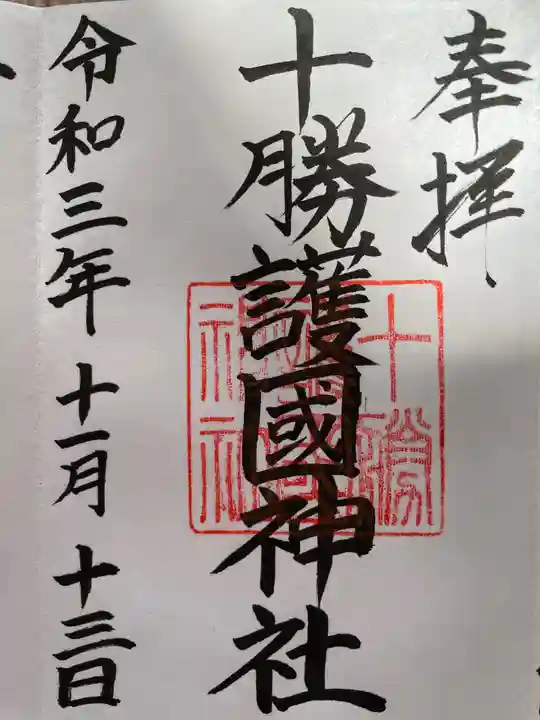 奉拝
十勝護國神社
十勝護國神社
令和三年十一月十三日